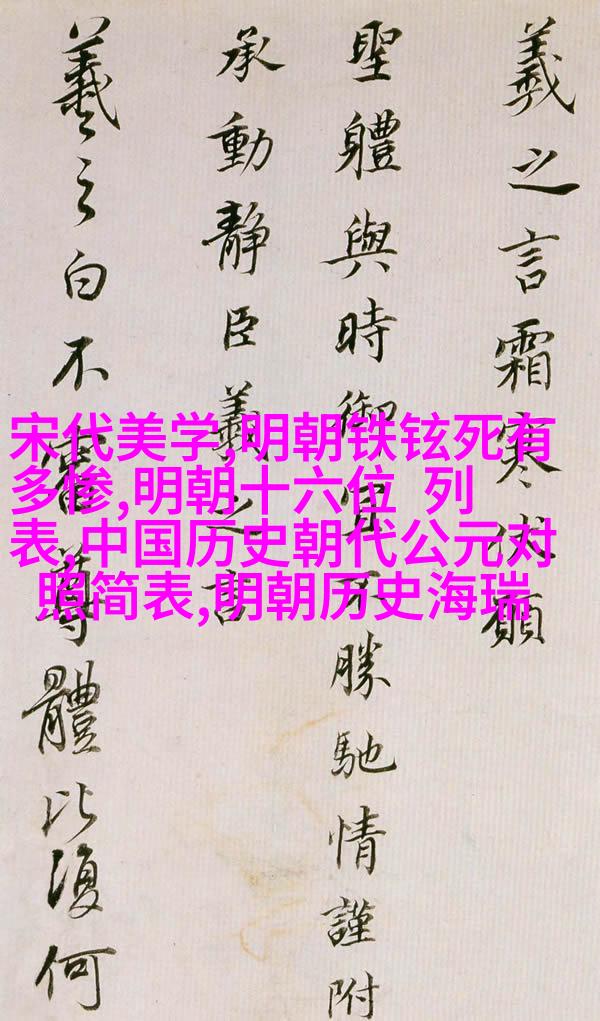 羲之言霜寒伏願
聖體與時御宜不勝馳情謹附
承動靜臣羲之言
羲之白不審尊體比復何
宋代美学,明朝铁铉死有
多惨,明朝十六位 列
表,中国历史朝代公元对
照简表,明朝历史海瑞